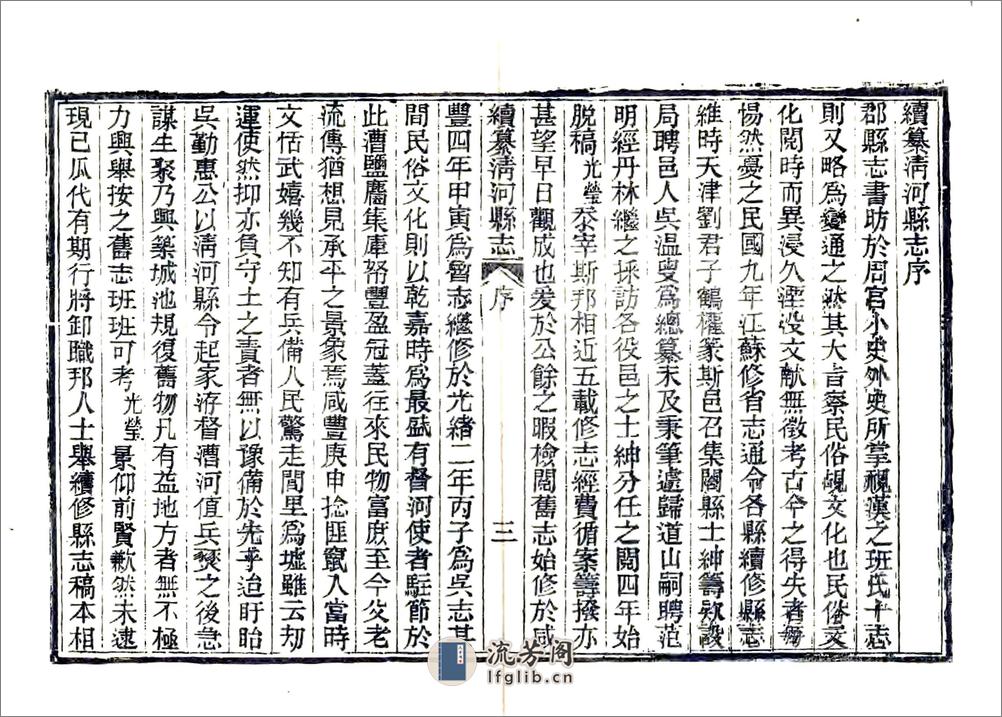 續纂清河縣志序
郡縣志書昉於周官小史外史所掌視漢之班氏十志
則又略爲變通之然其大旨察民俗覘文化也民俗文
化閱時而異浸久湮没文献無徵考古今之得失者每
惕然憂之民國九年江蘇修省志通令各縣續修縣志
維時天津劉君子鶴權篆斯邑召集闔縣士紳籌欵設
局聘邑人吳温叟爲總纂未及秉筆遽歸道山嗣聘范
明經丹林繼之採訪各役邑之士紳分任之閱四年始
脱稿光瑩忝宰斯邦相近五載修志經費循案籌撥亦
甚望早日觀成也爰於公餘之暇檢閱舊志始修於咸
續纂清河縣志 序 三
豐四年甲寅爲魯志繼修於光緒二年丙子爲吳志其
間民俗文化則以乾嘉時爲最盛有督河使者駐節於
此漕鹽麕集庫帑豐盈冠蓋往來民物富庶至今父老
流傳猶想見承平之景象焉咸豐庚申捻匪竄入當時
文恬武嬉幾不知有兵備人民驚走閭里爲墟雖云刧
運使然抑亦負守土之責者無以豫備於先乎迨盱眙
吳勤惠公以清河縣令起家洊督漕河值兵燹之後急
謀生聚乃興築城池規復舊物凡有益地方者無不極
力興舉按之舊志班班可考光瑩景仰前賢歉然未逮
現已瓜代有期行將卸職邦人士舉續修縣志稿本相
流芳阁
lfglib.cn